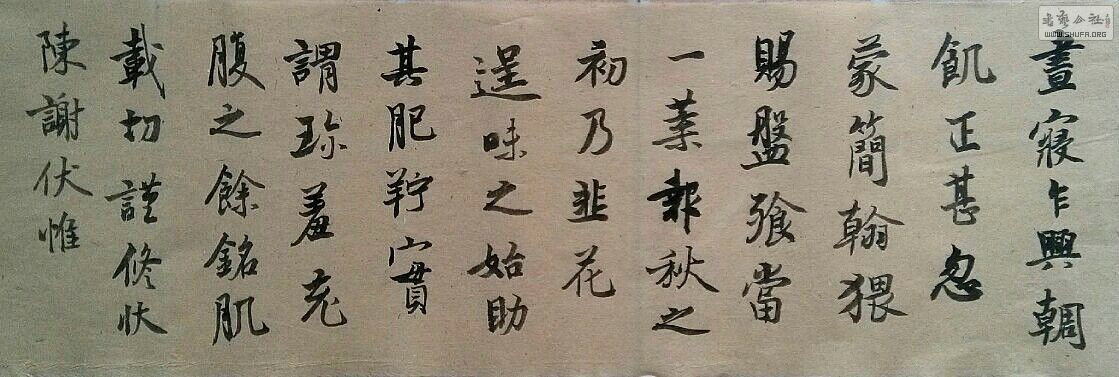 晝寢乍興輖
飢正甚忽
蒙簡翰猥
賜盤飧當
一葉報秋之
初乃韭花
逞味之始助
其肥羜實
謂珍羞充
腹之餘銘肌
載切謹修狀
陳謝伏惟
書藝公社
WWW.SHUFA.ORG